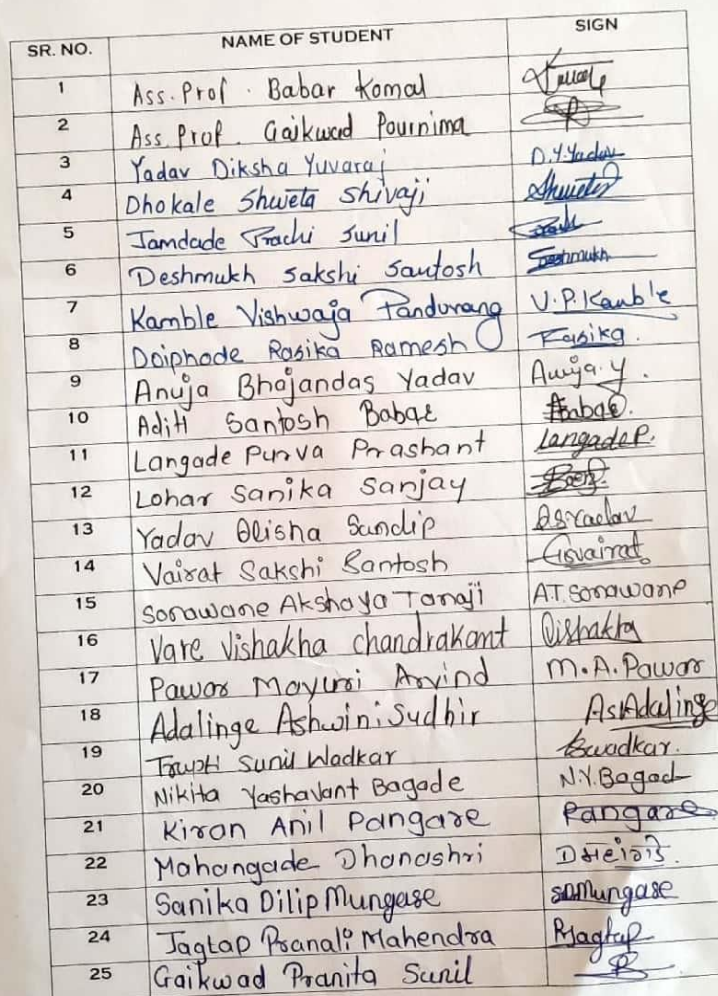 SR. NO. NAME OF STUDENT SIGN
1 Ass. Prof. Babar Komal
2 Ass. Prof. Gaikwad Pournima
3 Yadav Diksha Yuvaraj D.Y.Yadav
4 Dhokale Shweta Shivaji Shweta
5 Jamdade Prachi Sunil
6 Deshmukh Sakshi Santosh Deshmukh
7 Kamble Vishwaja Pandurang V.P.Kamble
8 Doiphode Rasika Ramesh Rasika.
9 Anuja Bhajandas Yadav Anuja.Y.
10 Aditi Santosh Babar
11 Langade Purva Prashant LangadeP.
12 Lohar Sanika Sanjay
13 Yadav Olisha Sandip OSYadav
14 Vairat Sakshi Santosh
15 Sonawane Akshaya Tanaji A.T.Sonawane
16 Vare Vishakha Chandrakant Vishakha
17 Pawar Mayuri Arvind M.A.Pawar
18 Adalinge Ashwini Sudhir AsAdalinge
19 Trupti Sunil Wadkar
20 Nikita Yashavant Bagade N.Y.Bagad
21 Kiran Anil Pangare Pangare
22 Mahangade Dhanashri
23 Sanika Dilip Mungase SDMungase
24 Jagtap Pranali Mahendra PJagtap
25 Gaikwad Pranita Sunil